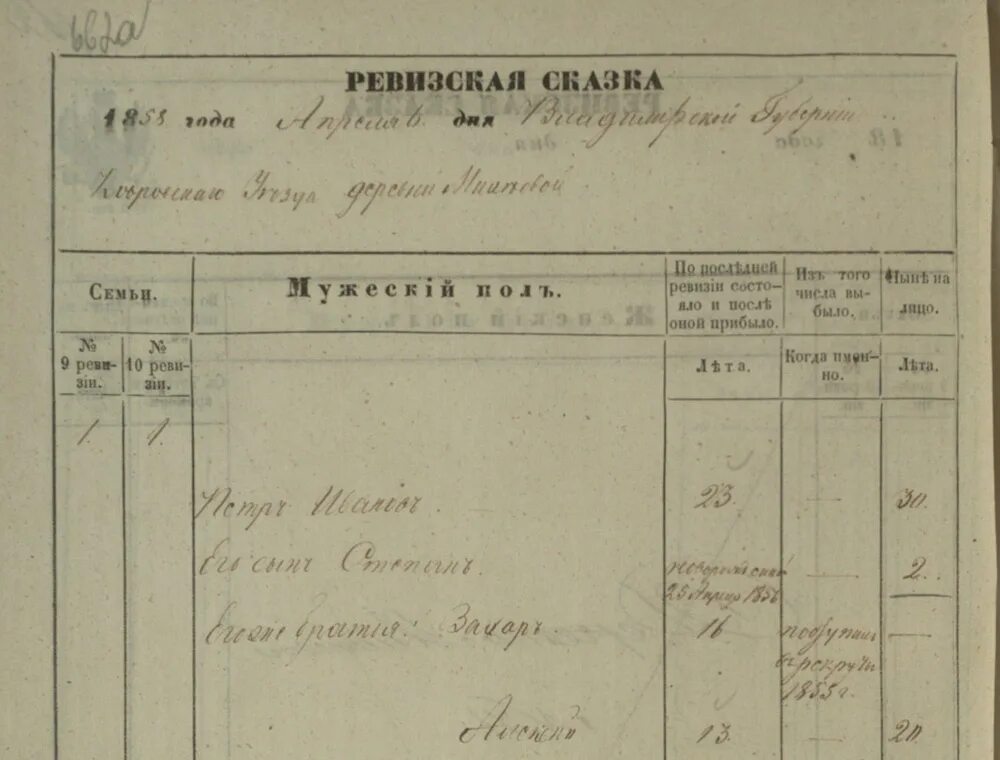 662а
РЕВИЗСКАЯ СКАЗКА
1858 года Апреля 6 дня Владимирской Губернии
Ковровскаго Уезда деревни
Семьи.
Мужескій полъ.
По послѣдней ревизіи состояло и послѣ оной прибыло.
Изъ того числа выбыло.
Нынѣ на лицо.
№ 9 ревизіи.
№ 10 ревизіи.
Лѣта.
Когда именно.
Лѣта.
1. 1.
Петръ Ивановъ. 23. — 30.
Его сынъ Степанъ. новорожденъ 25 Апреля 1856 — 2.
Егоже братья: Захаръ. 16 поступилъ в рекруты 1855 г. —
Алексей 13. — 20.